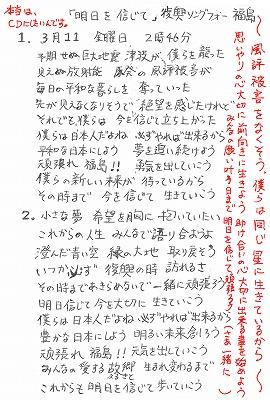 本当は、
CDにしたいんです。
「明日を信じて」復興ソングフォー福島
1. 3月11 金曜日 2時46分
予期せぬ巨大地震 津波が、僕らを襲った
見えぬ放射能 原発の風評被害が
毎日の平和な暮らしを 奪っていた
先が見えなくなりそうで 絶望を感じたけれど
それでも僕らは 今を信じて立ち上がった
僕らは日本人だよね 必ずやれば出来るから
平和な日本にしよう 夢を追い続けよう
頑張れ 福島!! 勇気を出していこう
僕らの新しい未来が 待っているから
その時まで 今を信じて 生きていこう
2. 小さな夢 希望を胸に 抱いていたい
これからの人生 みんなで語り合おうよ
澄んだ青い空 緑の大地 取り戻そう
いつか必ず 復興の時 訪れるさ
その時まであきらめないで 一緒に頑張ろう
明日信じて 今を大切に 生きていこう
僕らは日本人だよね 必ずやれば出来るから
豊かな日本にしよう 明るい未来創ろう
頑張れ 福島!! 元気を出していこう
みんなの愛する故郷 生まれ変わるまで
ふるさと
これからも明日を信じて 歩いていこう
〜風評被害をなくそう、僕らは同じ星に生きているから〜
思いやりの心大切に前向きに生きよう助け合いの心大切に出来る事を始めよう
みんなの願い叶う日まで明日を信じて頑張ろう(さあ一緒に)